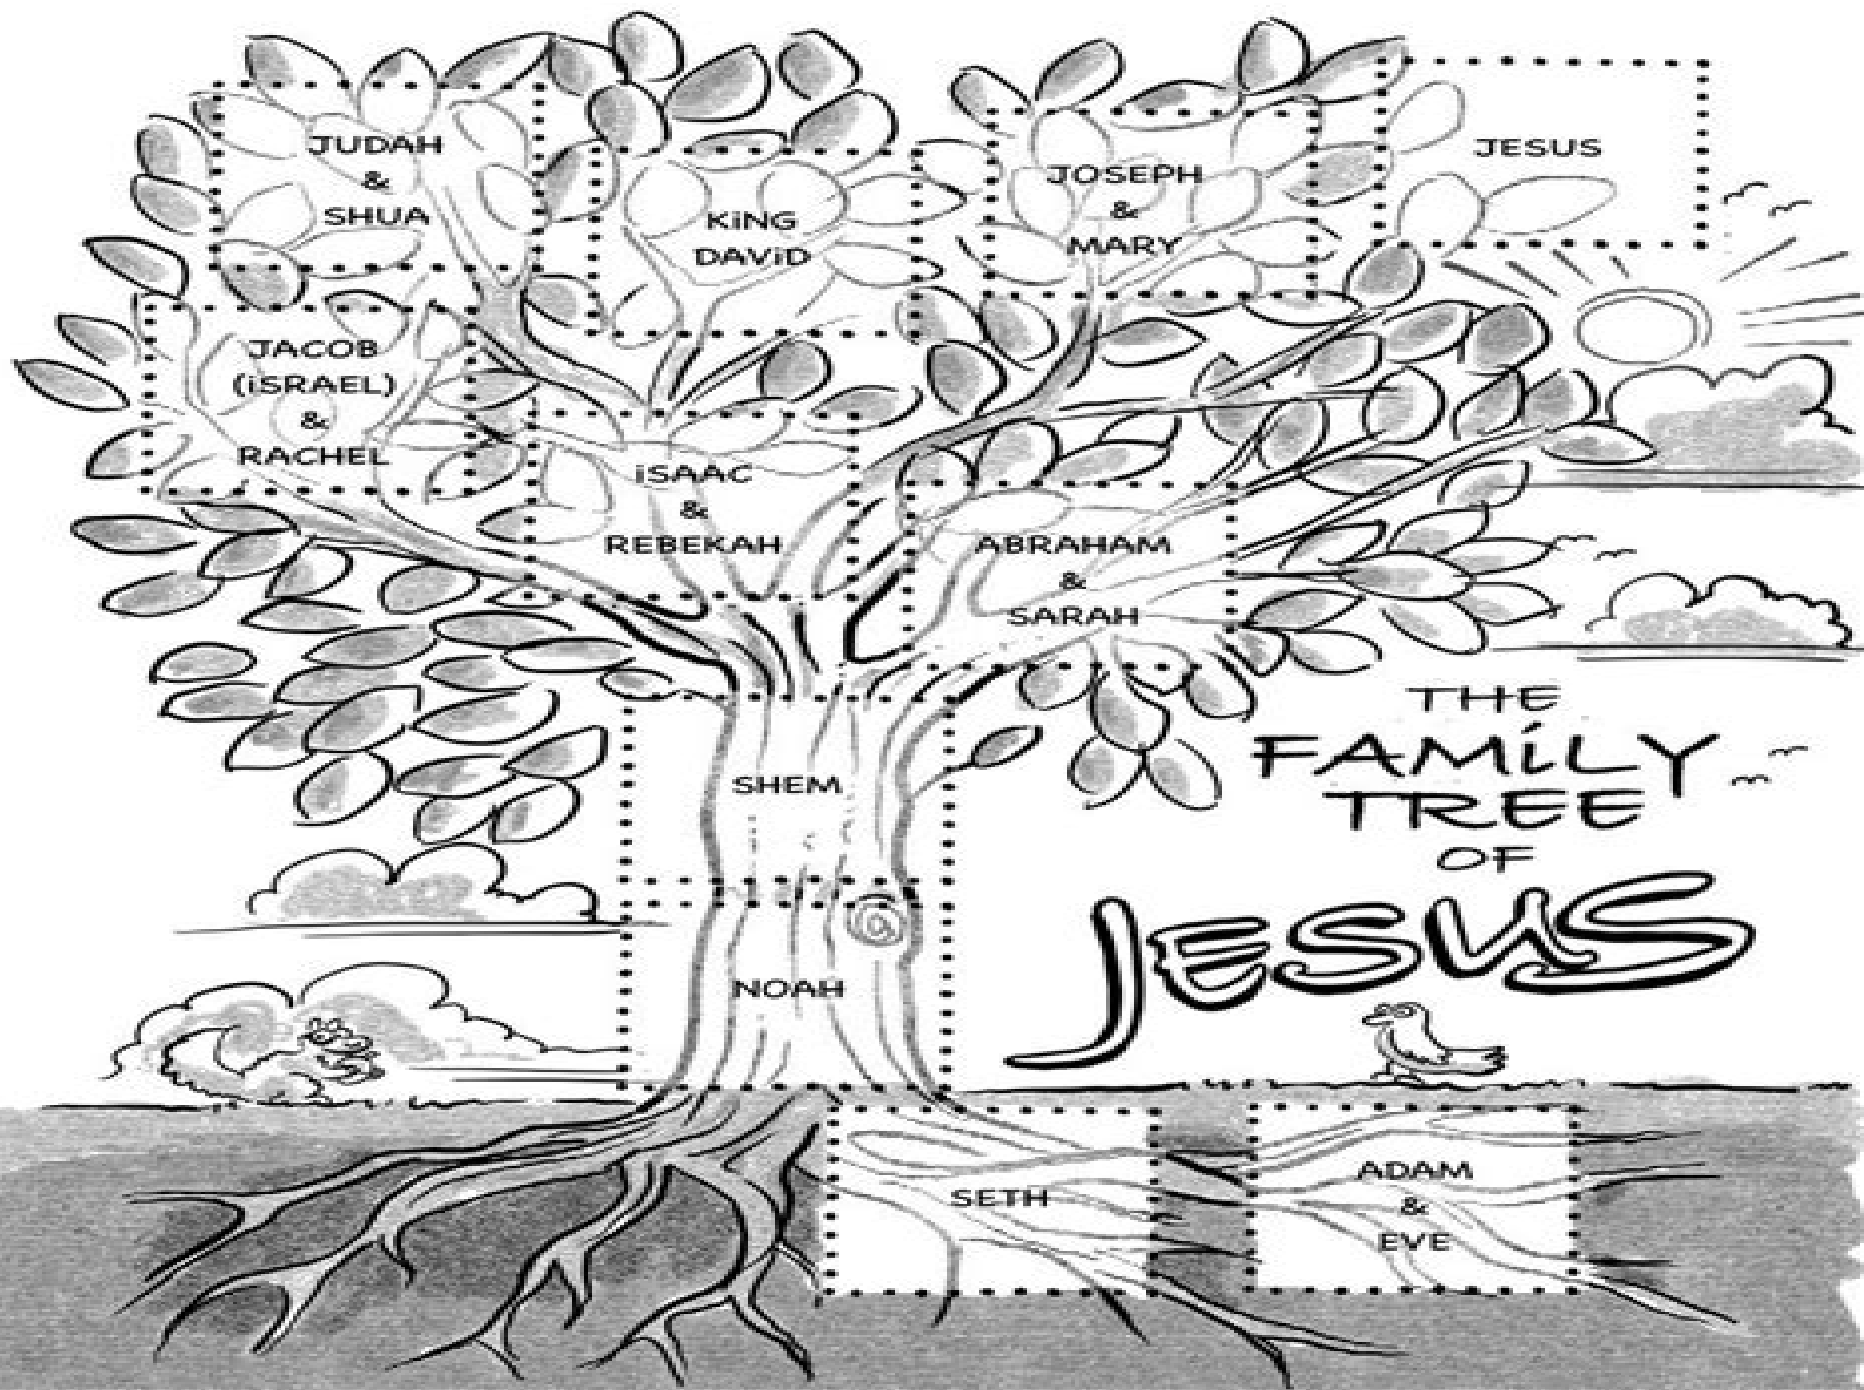 JUDAH
&
SHUA
KiNG
DAViD
JOSEPH
&
MARY
JESUS
JACOB
(iSRAEL)
&
RACHEL
iSAAC
&
REBEKAH
ABRAHAM
&
SARAH
SHEM
NOAH
THE
FAMiLY
TREE
OF
JESUS
SETH
ADAM
&
EVE